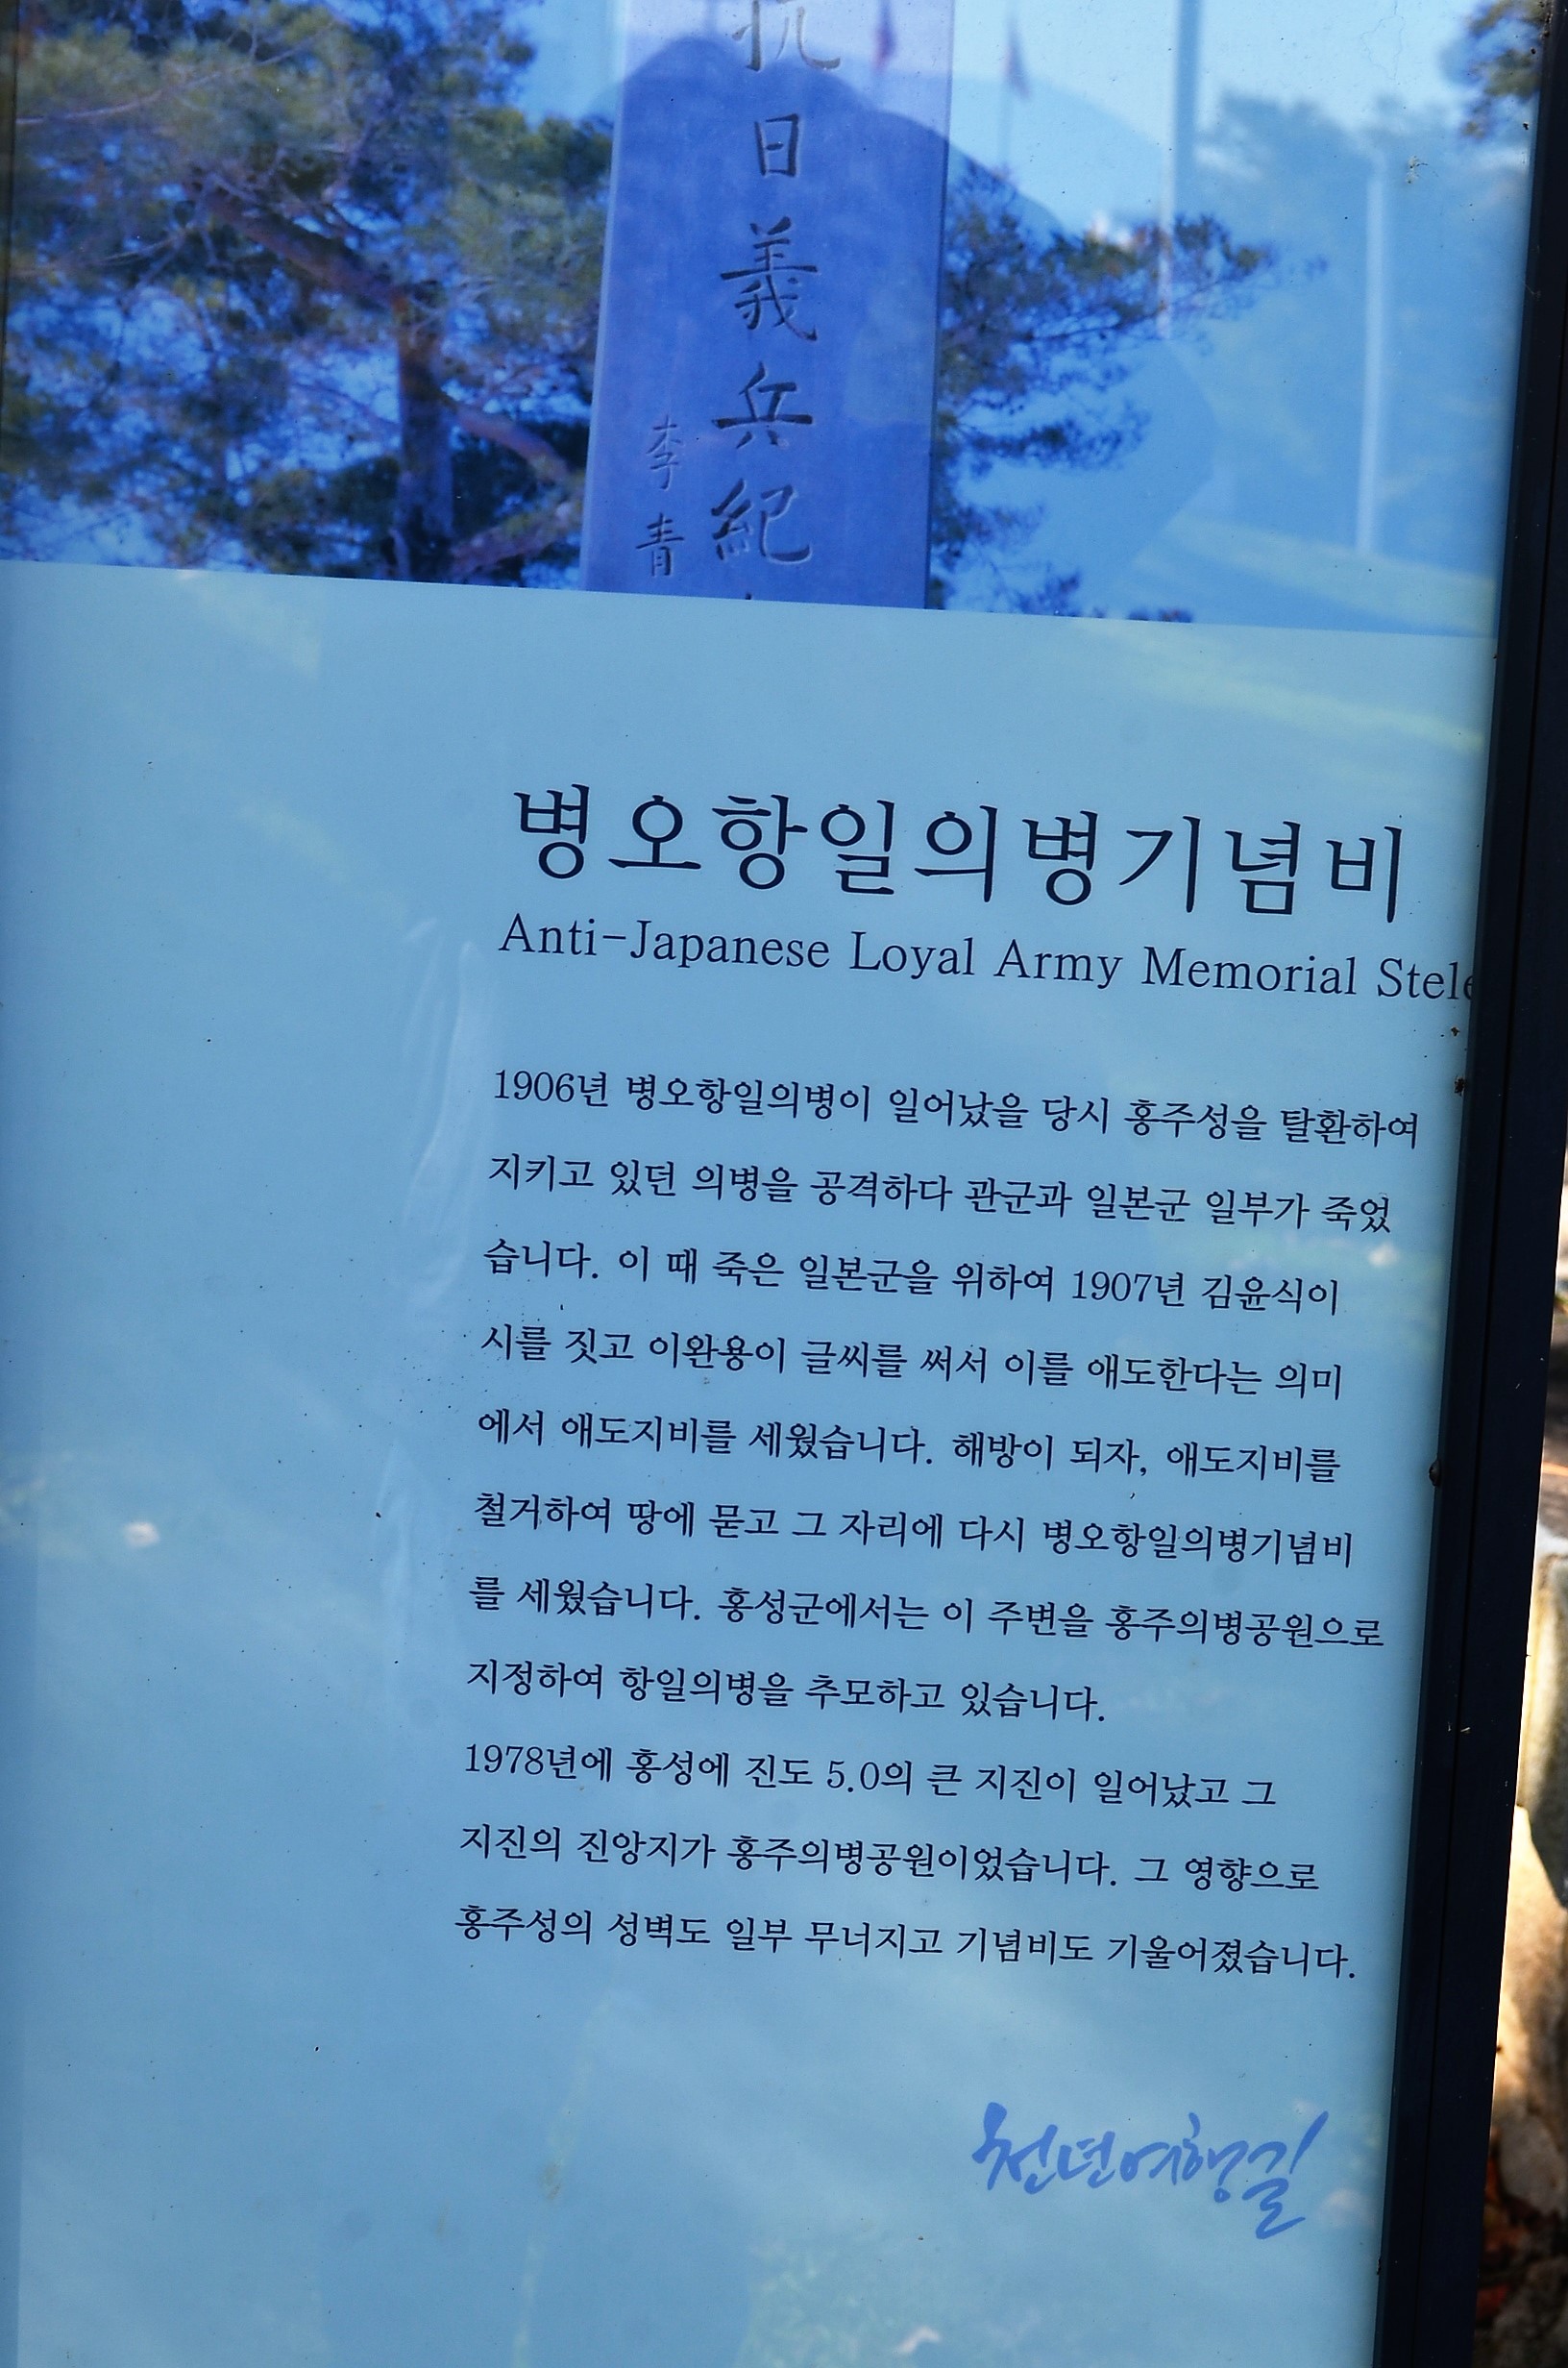 抗
日
義
兵
紀
李
青
병오항일의병기념비
Anti-Japanese Loyal Army Memorial Stele
1906년 병오항일의병이 일어났을 당시 홍주성을 탈환하여
지키고 있던 의병을 공격하다 관군과 일본군 일부가 죽었
습니다. 이 때 죽은 일본군을 위하여 1907년 김윤식이
시를 짓고 이완용이 글씨를 써서 이를 애도한다는 의미
에서 애도지비를 세웠습니다. 해방이 되자, 애도지비를
철거하여 땅에 묻고 그 자리에 다시 병오항일의병기념비
를 세웠습니다. 홍성군에서는 이 주변을 홍주의병공원으로
지정하여 항일의병을 추모하고 있습니다.
1978년에 홍성에 진도 5.0의 큰 지진이 일어났고 그
지진의 진앙지가 홍주의병공원이었습니다. 그 영향으로
홍주성의 성벽도 일부 무너지고 기념비도 기울어졌습니다.
천년여행길